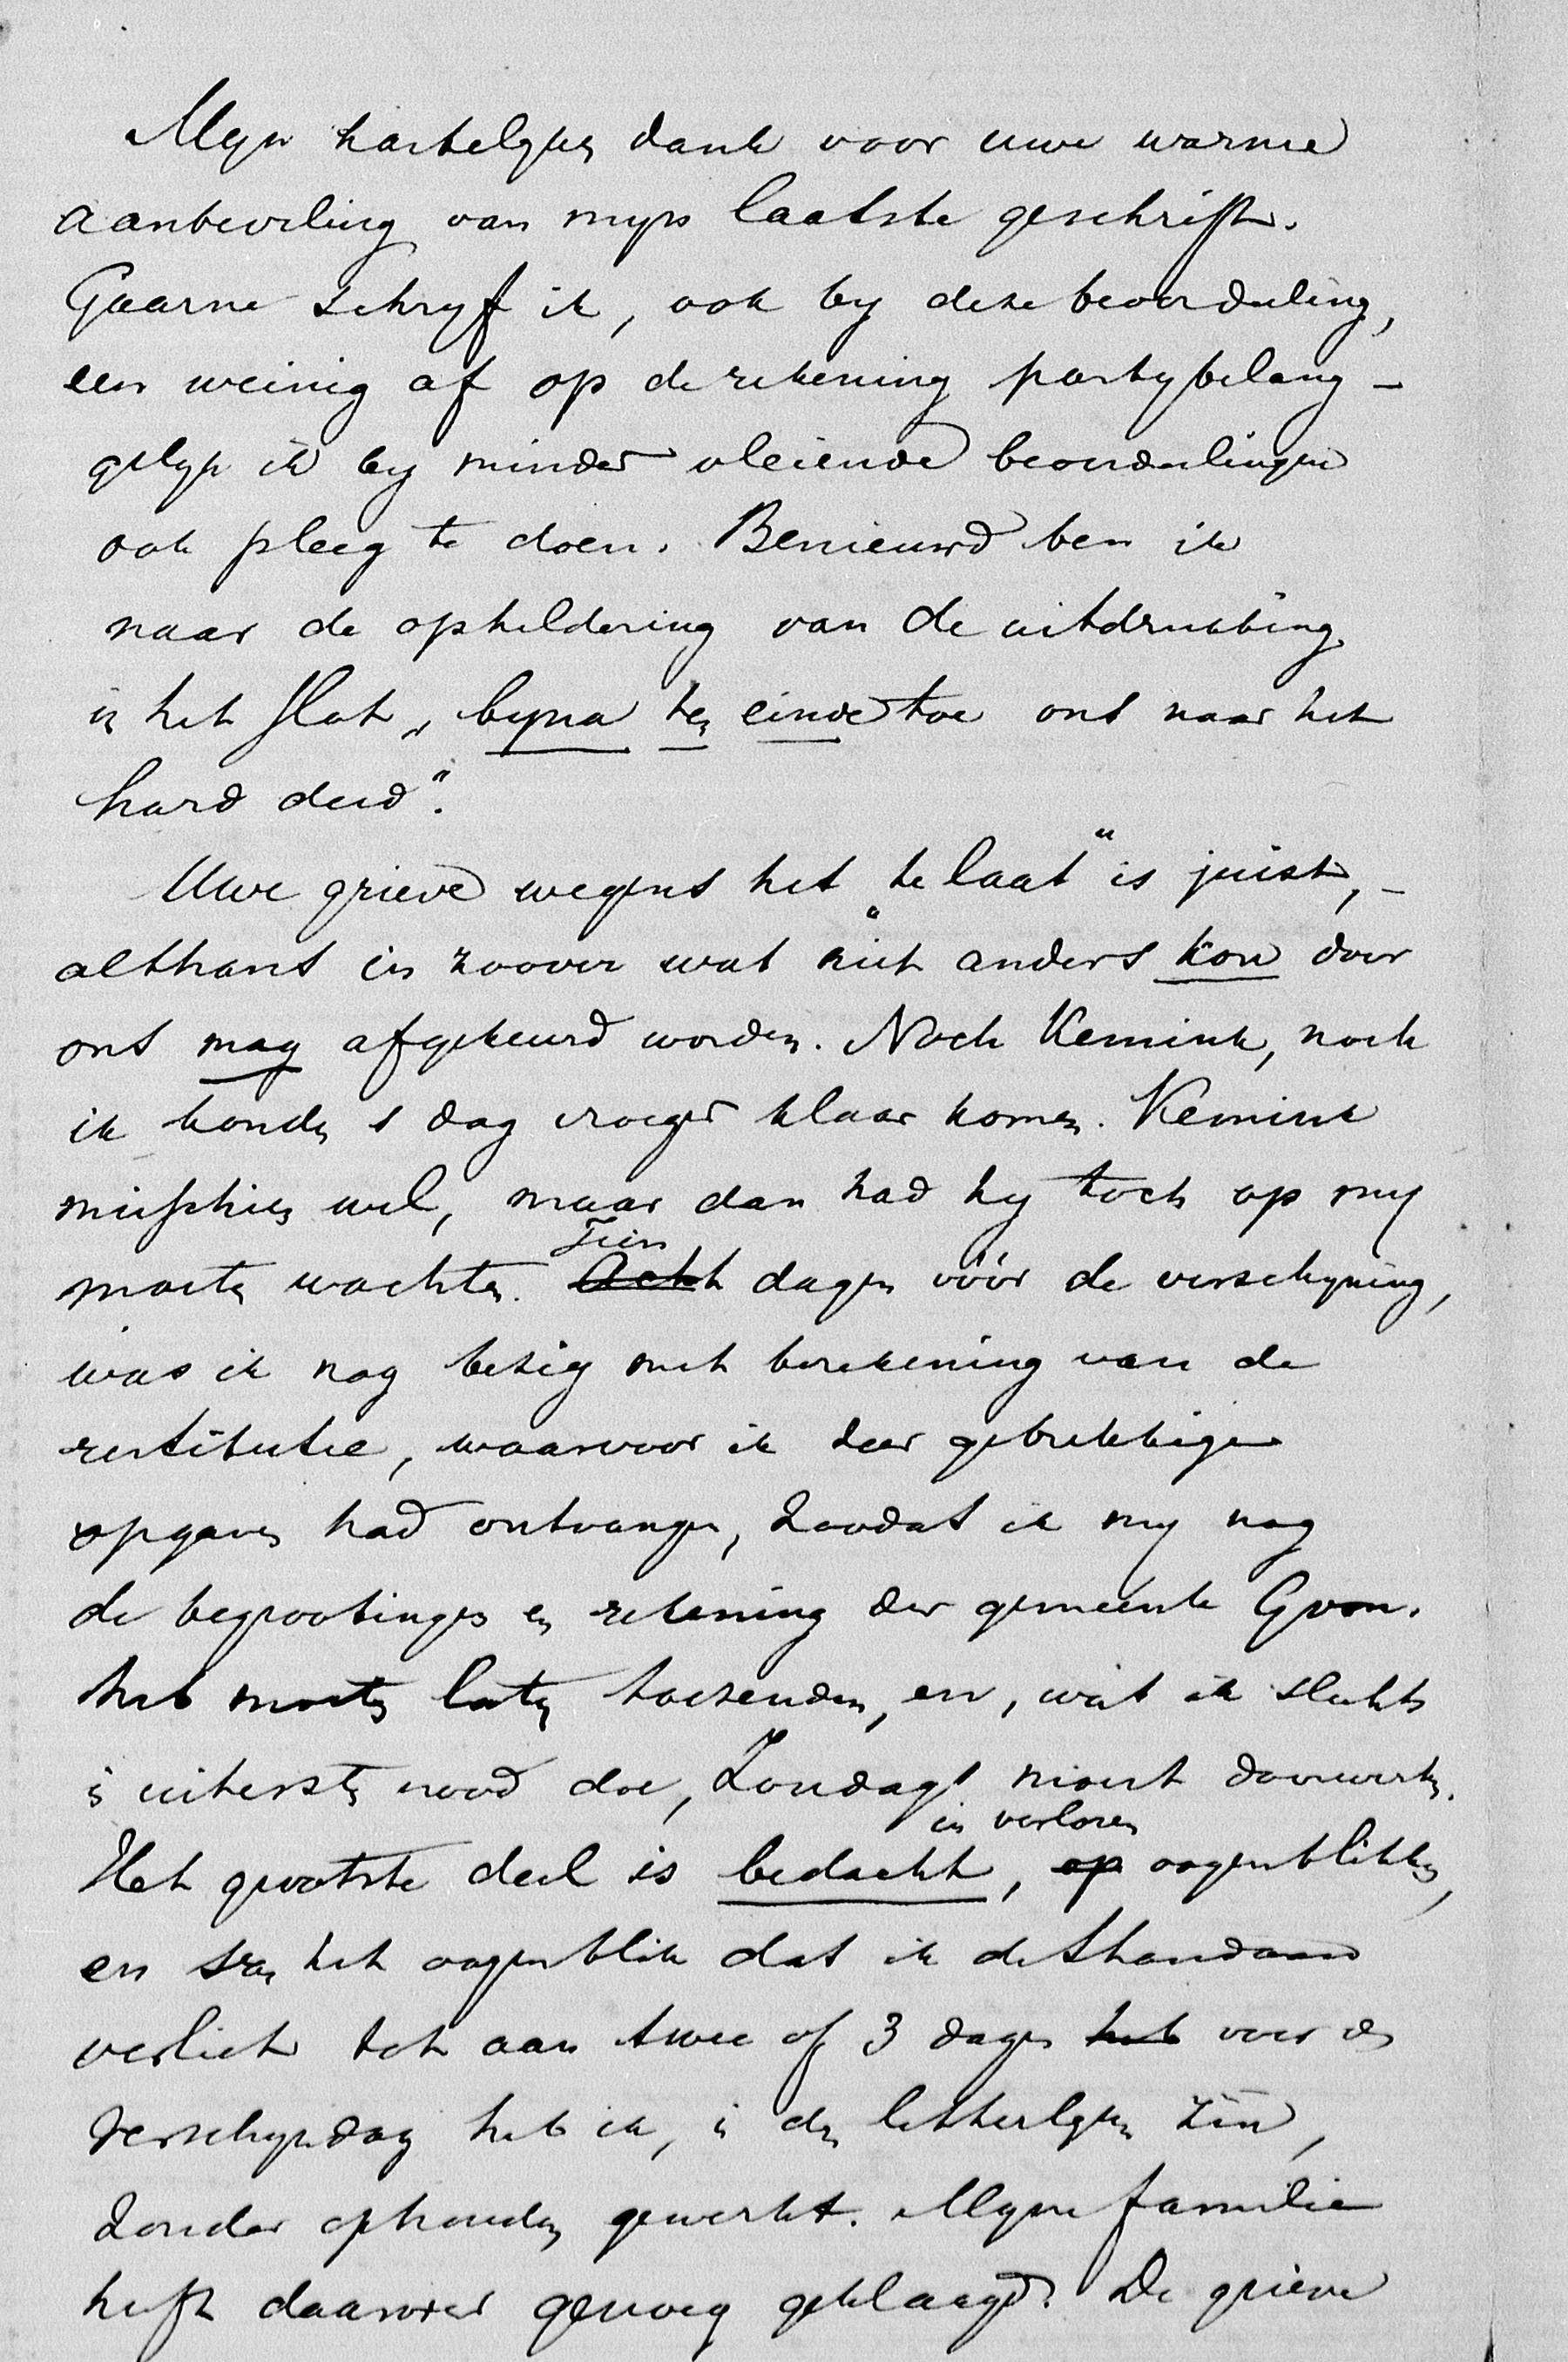 Myn hartelyken dank voor uwe warme
aanbeveling van myn laatste geschrift.
Gaarne schryf ik, ook by deze beoordeeling,
een weinig af op de rekening partybelang -
gelyk ik by minder vleiende beoordeelingen
ook pleeg te doen. Benieuwd ben ik
naar de opheldering van de uitdrukking
in het slot, „byna ten einde toe ons naar het
hard deed".
Uwe grieve wegens het „te laat" is juist, -
althans in zoover wat niet anders kon door
ons mag afgekeurd worden. Noch Kemink, noch
ik konden 1 dag vroeger klaar komen. Kemink
misschien wel, maar dan had hy toch op my
moeten wachten. Tien
Acht dagen vóór de verschyning,
was ik nog bezig met berekening van de
restitutie, waarvoor ik zeer gebrekkige
opgaven had ontvangen, zoodat ik my nog
de begrootingen en rekening der gemeente Gron.
heb moeten laten toezenden, en, wat ik slechts
in uitersten nood doe, Zondags moest doorwerken.
in verloren
Het grootste deel is bedacht, op oogenblikken,
en van het oogenblik dat ik de Standaard
verliet tot aan twee of 3 dagen heb voor den
verschyndag heb ik, in den letterlyken zin,
zonder ophouden gewerkt. Myne familie
heeft daarover genoeg geklaagd. De grieve